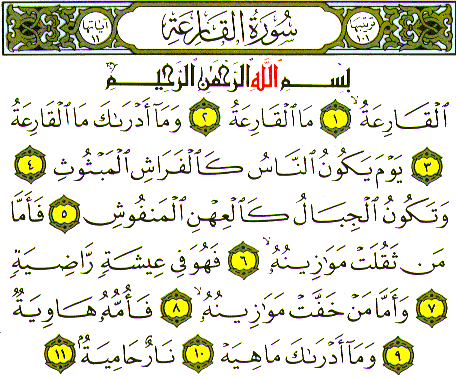 سُورَةُ القَارِعَةِ
آياتها ١١
بِسْمِ ٱللَّهِ ٱلرَّحْمَٰنِ ٱلرَّحِيمِ
ٱلْقَارِعَةُ ١ مَا ٱلْقَارِعَةُ ٢ وَمَآ أَدْرَىٰكَ مَا ٱلْقَارِعَةُ
٣ يَوْمَ يَكُونُ ٱلنَّاسُ كَٱلْفَرَاشِ ٱلْمَبْثُوثِ ٤
وَتَكُونُ ٱلْجِبَالُ كَٱلْعِهْنِ ٱلْمَنفُوشِ ٥ فَأَمَّا
مَن ثَقُلَتْ مَوَٰزِينُهُۥ ٦ فَهُوَ فِى عِيشَةٍ رَّاضِيَةٍ
٧ وَأَمَّا مَنْ خَفَّتْ مَوَٰزِينُهُۥ ٨ فَأُمُّهُۥ هَاوِيَةٌ
٩ وَمَآ أَدْرَىٰكَ مَا هِيَهْ ١٠ نَارٌ حَامِيَةٌۢ ١١